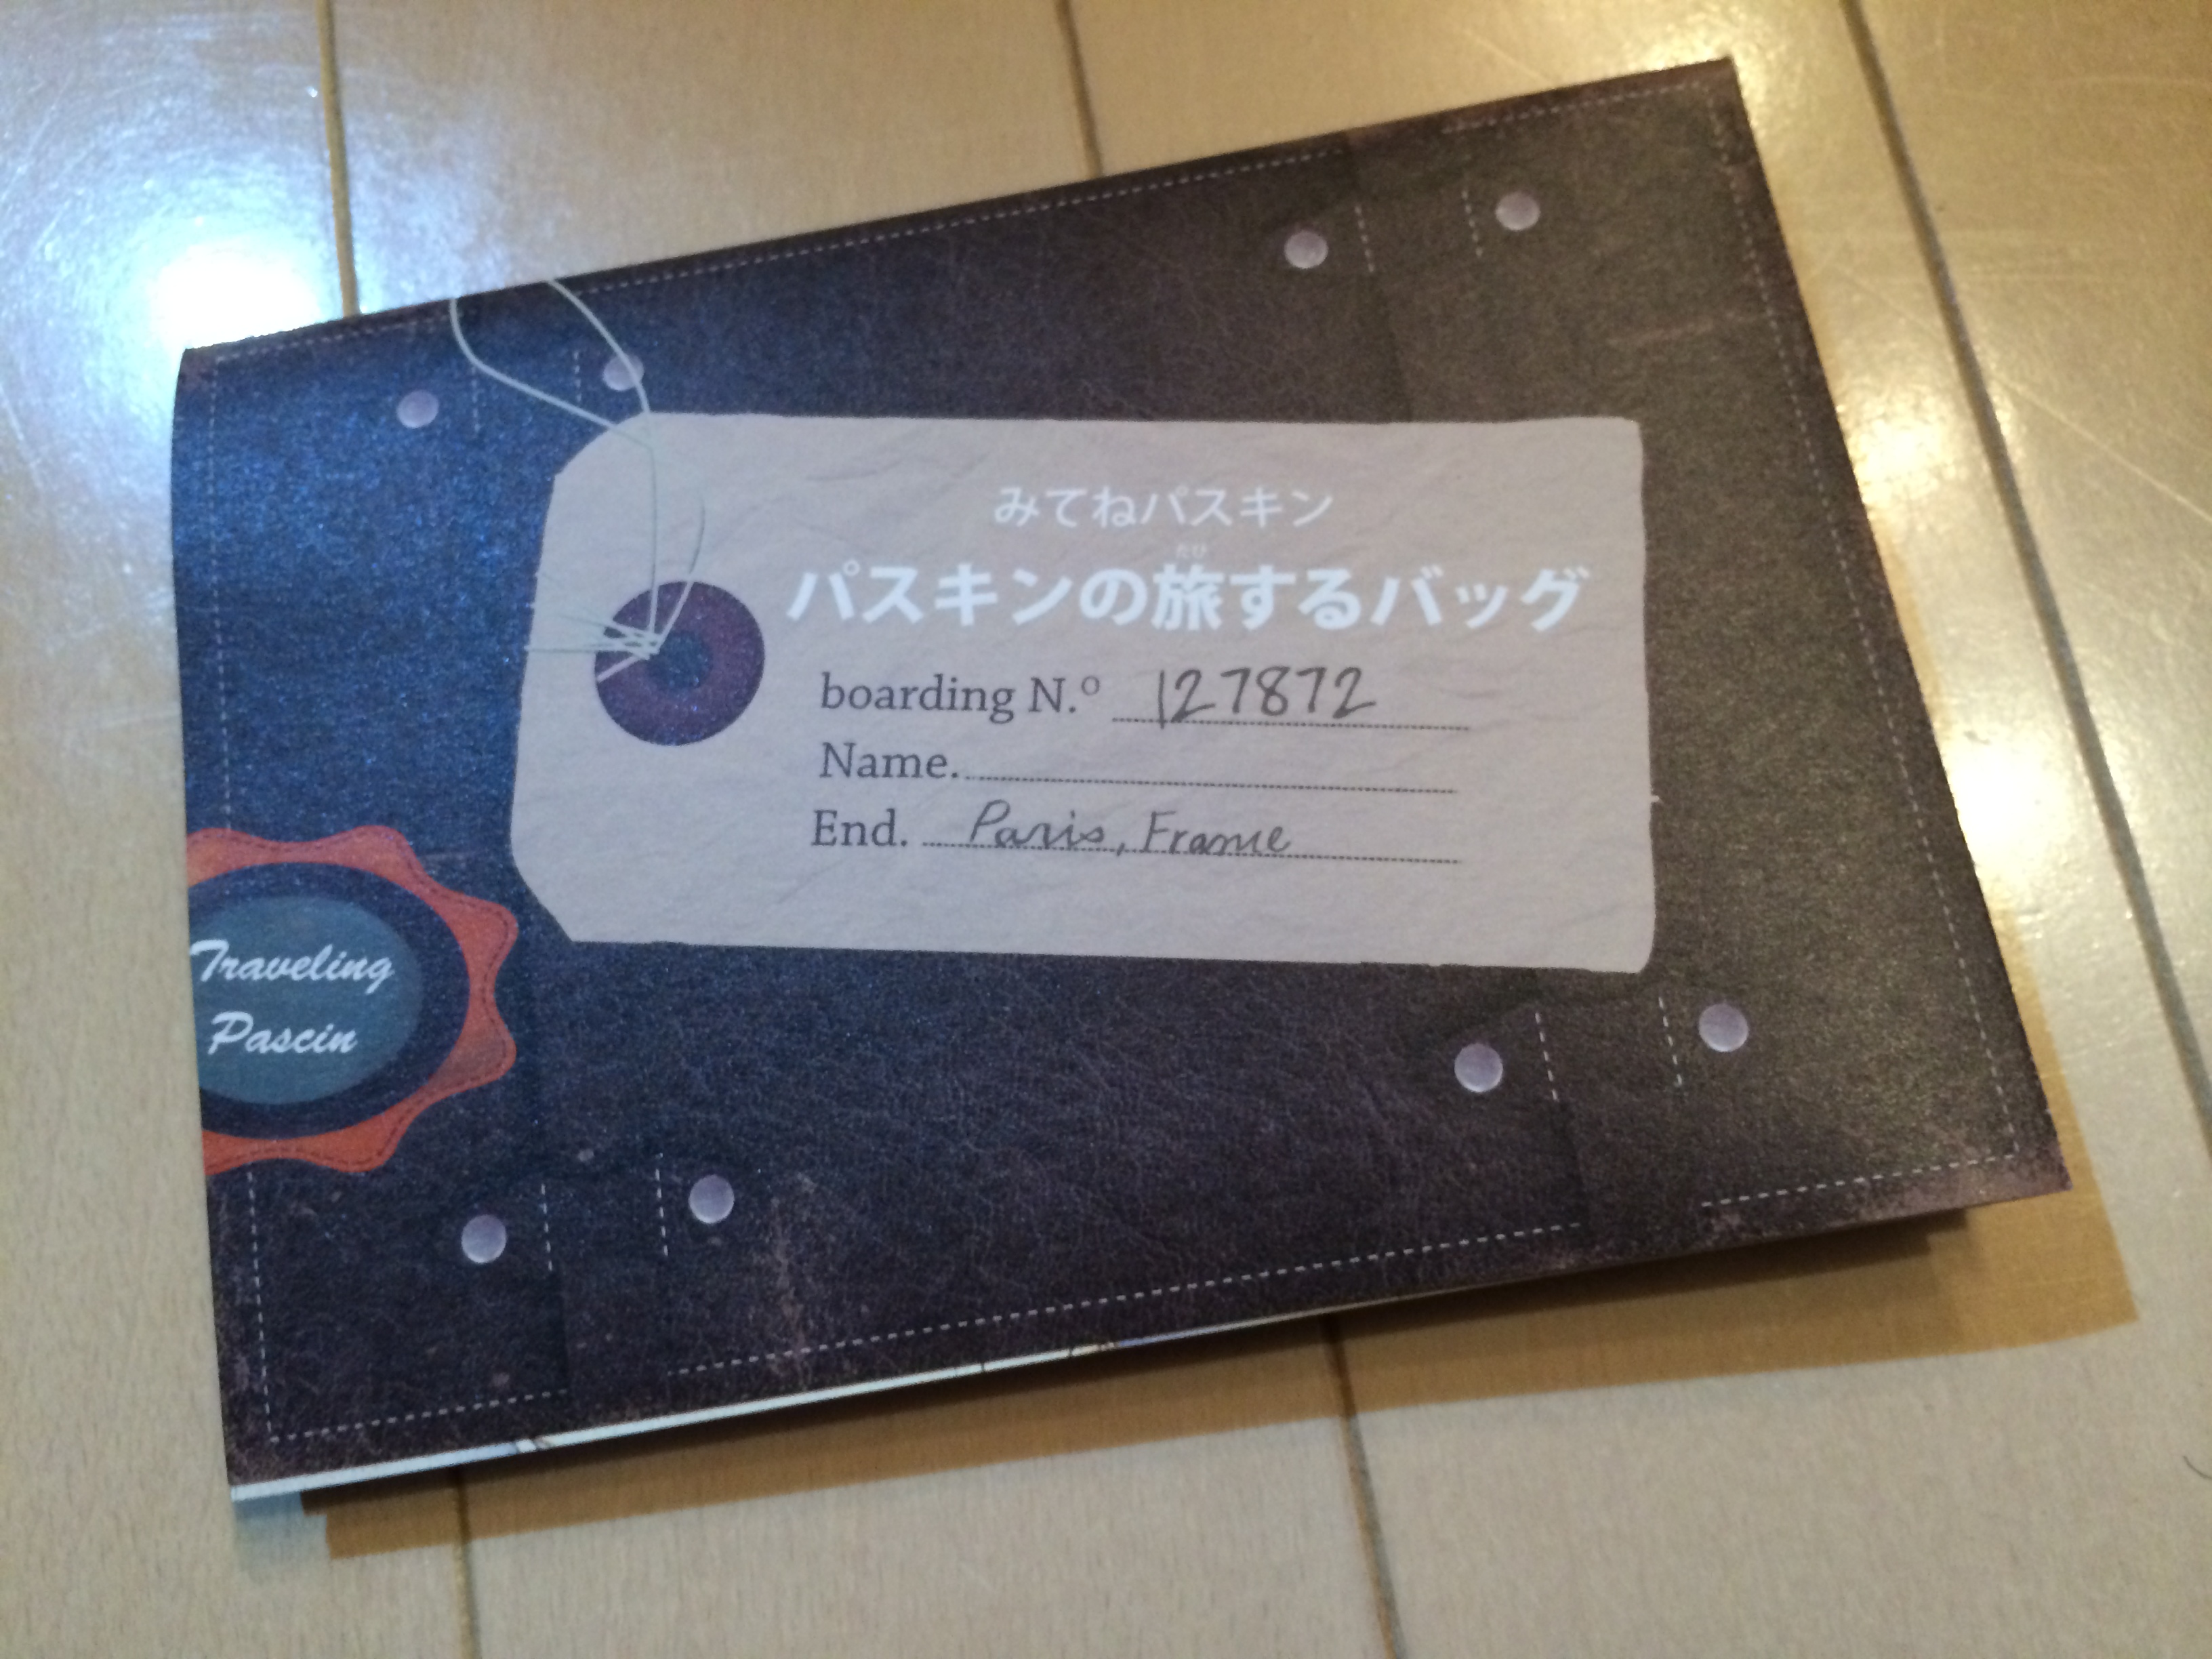 みてねパスキン
たび
パスキンの旅するバッグ
boarding N.º 127872
Name.
End. Paris, France
Traveling
Pascin